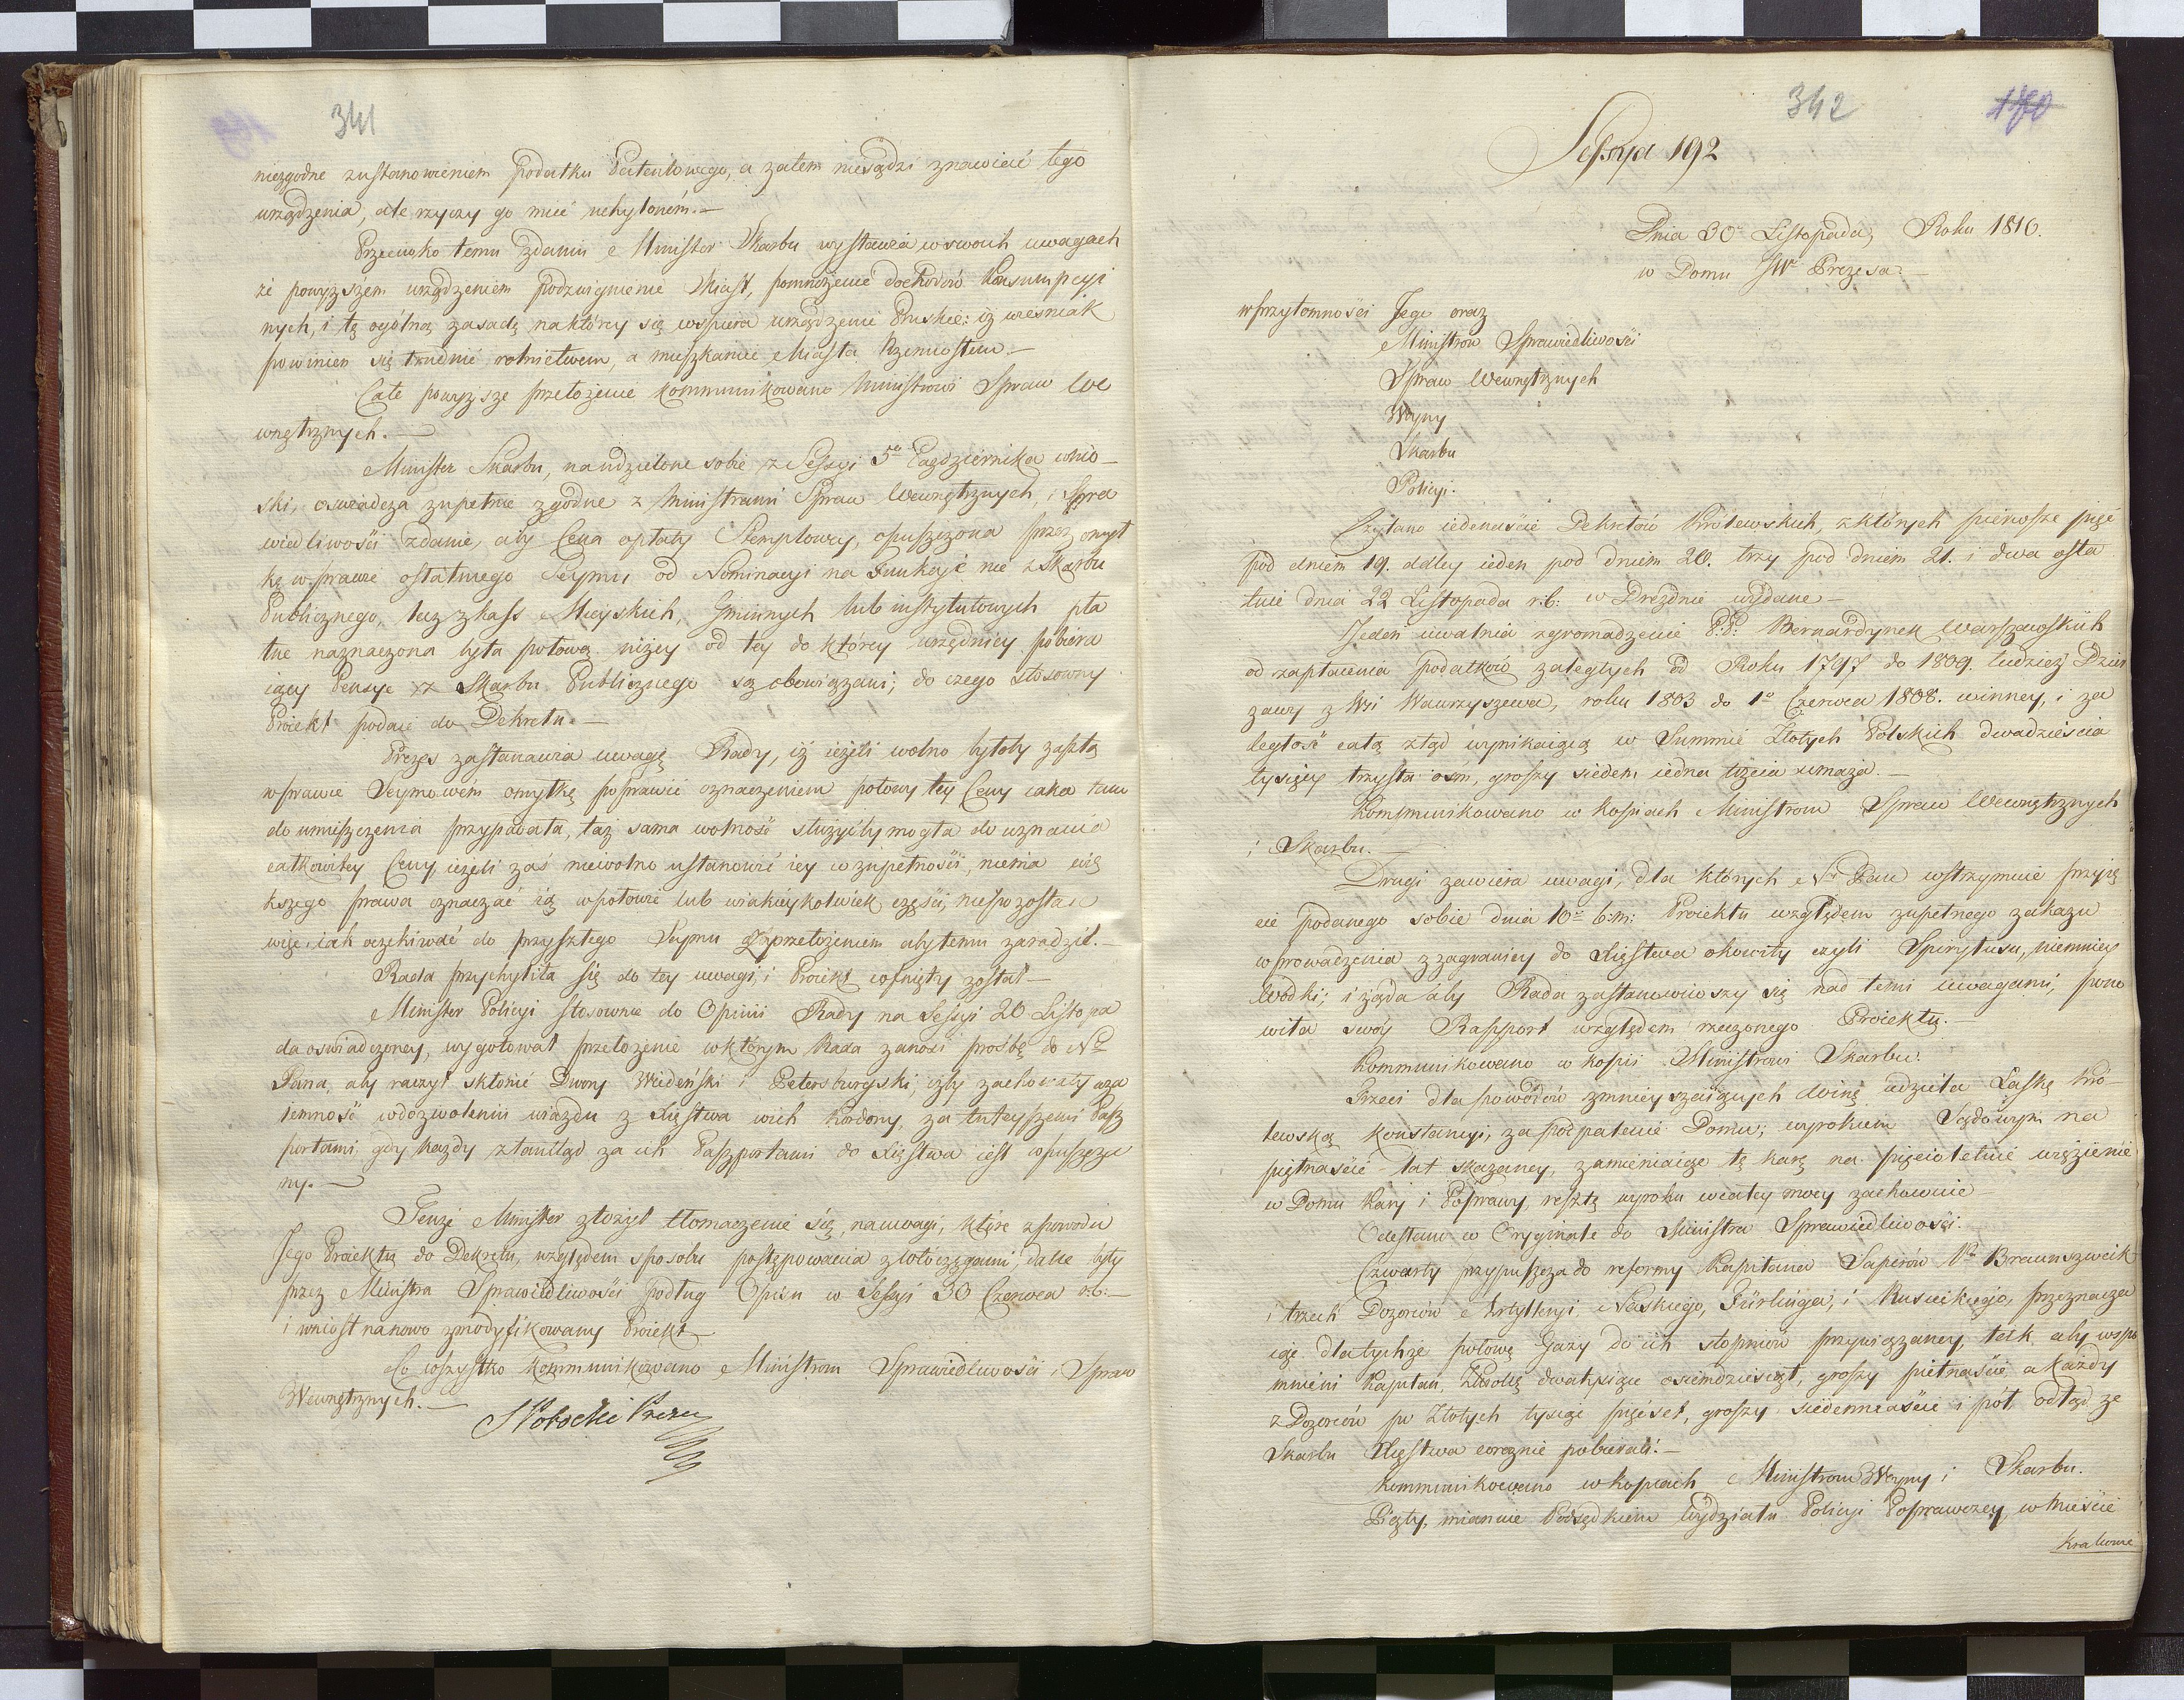 341
niezgodne zustanowieniem Podatku Patentowego, a zatem niesądzi znawieać tego
urządzenia, ale rzyczy go mieć uchylonem.—
Przeciwko temu zdaniu Minister Skarbu wystawia wswoich uwagach
że powyzszem urządzeniem podzwignienie Miast, pomnożenie dochodów Konsumpcyi
nych, i tę ogólną zasadę naktórey się wspiera urządzenie Pruskie: iż wieśniak
powinien się trudnić rolnictwem, a mieszkaniec Miasta Rzemiosłem.—
Całe powyzsze przełożenie kommunikowano Ministrowi Spraw We
wnętrznych.—
Minister Skarbu, naudzielone sobie z Sessyi 5go Pazdziernika wnio-
ski, oswiadcza zupełnie zgodne z Ministrami Spraw Wewnętrznych i Spra
wiedliwości zdanie, aby Cena opłaty Stemplowey, opuszczona przez omył
kę wprawie ostatniego Seymu od Nominacyi na Funkcyie nie z Skarbu
Publicznego, lecz zkass Mieyskich, Gminnych lub instytutowych pła
tne naznaczona była połową niżey od tey do którey urzędnicy pobiera
iący Pensye z Skarbu Publicznego są obowiązani; do czego stosowny
Proiekt podaie do Dekretu.—
Prezes zastanawia uwagę Rady, iż ieżeli wolno byłoby zaszłą
wprawie Seymowém omyłkę poprawić oznaczeniem połowy tey Ceny iaka tam
do umieszczenia przypadała, taż sama wolność służyćby mogła do uznania
całkowitey Ceny, ieżeli zaś niewolno ustanowić iey wzupełności, niema wię
kszego prawa oznaczać ią wpołowie lub wiakieykolwiek części, niepozostaie
więc, iak oczekiwać do przyszłego Seymu zprzełożeniem aby temu zaradził.—
Rada przychyliła się do tey uwagi, i Proiekt cofnięty został—
Minister Policyi stosownie do Opinii Rady na Sessyi 20 Listopa
da oswiadczoney, wygotował przełożenie wktórym Rada zanosi prośbę do No
Pana, aby raczył skłonić Dwory Wiedeński i Petersburgski, iżby zachowały wza
iemność wdozwoleniu wiazdu z Xięstwa wich Kordony, za tuteyszemi Pasz
portami, gdy każdy ztamtąd za ich Paszportami do Xięstwa iest wpuszczo
ny.—
Tenże Minister złożył tłomaczenie się, nauwagi, które zpowodu
Jego Proiektu do Dekretu, względem sposobu postępowania zwłóczęgami, dane były
przez Ministra Sprawiedliwości podług Opinii w Sessyi 30 Czerwca r.b.—
i wniosł nanowo zmodyfikowany Proiekt—
Co wszystko kommunikowano Ministrom Sprawiedliwości i Spraw
Wewnętrznych.—
S Potocki Prezes
342
170
Sessya 192
Dnia 30 Listopada, Roku 1810.
w Domu JW Prezesa.—
wprzytomności Jego oraz
Ministrów Sprawiedliwości
Spraw Wewnętrznych
Woyny
Skarbu
Policyi.
Czytano iedenaście Dekretów Królewskich, zktórych pierwsze pięć
pod dniem 19. daley ieden pod dniem 20. trzy pod dniem 21. i dwa osta
tnie dnia 22 Listopada r.b: w Drezdnie wydane—
Jeden uwalnia zgromadzenie P.P. Bernardynek Warszawskich
od zapłacenia podatków zaległych od Roku 1797 do 1809. tudzież Dzier
zawy z Wsi Wawrzyszewa, roku 1803 do 1o Czerwca 1808. winney, i za
ległość całą ztąd wynikaiącą w Summie Złotych Polskich dwadzieścia
tysięcy trzysta ośm, groszy siedem iedna trzecia umaża.—
Kommunikowano w kopiach Ministrom Spraw Wewnętrznych
i Skarbu.—
Drugi zawiera uwagi, dla których Nay: Pan wstrzymuie przyię
cie podanego sobie dnia 10go b:m: Proiektu względem zupełnego zakazu
wprowadzenia z zagranicy do Xięstwa okowity czyli Spirytusu, niemniey
Wódki; i żąda aby Rada zastanowiwszy się nad temi uwagami, pono
wiła swóy Rapport względem rzeczonego Proiektu.—
Kommunikowano w kopii Ministrowi Skarbu.
Trzeci dla powodów zmnieyszaiących winę udziela Łaskę Kró-
lewską Konstancyi, za podpalenie Domu, wyrokiem Sądowym na
piętnaście lat skazaney, zamieniaiąc tę karę na pięcioletnie więzienie
w Domu Kary i Poprawy, resztę wyroku wcałey mocy zachowuie
Odesłano w Oryginale do Ministra Sprawiedliwości.
Czwarty przypuszcza do reformy Kapitana Saperów Braunszweik
i trzech Dozorców Artylleryi Neskiego, Fürlinga, i Rusieckiego, przeznacza
iąc dlatychże połowę Gaży do ich stopniów przywiązaney, tak aby wspo
mniony Kapitan, Złotych dwatysiące osiemdziesiąt, groszy piętnaście a każdy
z Dozorców po Złotych tysiąc pięćset, groszy siedemnaście i pół, odtąd ze
Skarbu Xięstwa corocznie pobierali.—
Kommunikowano wkopiach Ministrom Woyny i Skarbu.
Piąty, mianuie Podsędkiem Wydziału Policyi Poprawczey, w Mieście
Krakowie